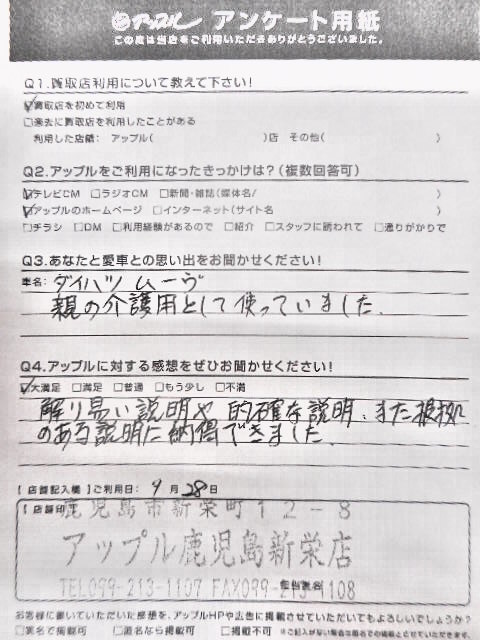 アップル アンケート用紙
この度は当店をご利用いただきありがとうございました。
Q1.買取店利用について教えて下さい!
☑買取店を初めて利用
□過去に買取店を利用したことがある
利用した店舗: アップル( )店 その他( )
Q2.アップルをご利用になったきっかけは?(複数回答可)
☑テレビCM □ラジオCM □新聞・雑誌(媒体名/ )
☑アップルのホームページ □インターネット(サイト名 )
□チラシ □DM □利用経験があるので □紹介 □スタッフに誘われて □通りがかりで
Q3.あなたと愛車との思い出をお聞かせください!
車名: ダイハツ ムーヴ
親の介護用として使っていました.
Q4.アップルに対する感想をぜひお聞かせください!
☑大満足 □満足 □普通 □もう少し □不満
解り易い説明や 的確な説明、また根拠
のある説明に納得できました.
【店舗記入欄】ご利用日: 9月28日
【店舗印】
鹿児島市新栄町12-8
アップル鹿児島新栄店
TEL099-213-1107 FAX099-213-1108
担当署名
お客様に書いていただいた感想を、アップルHPや広告に掲載させていただいてもよろしいでしょうか?
□実名で掲載可 □匿名なら掲載可 □掲載不可 ※ご記入が無い場合は匿名での掲載とさせていただきます。